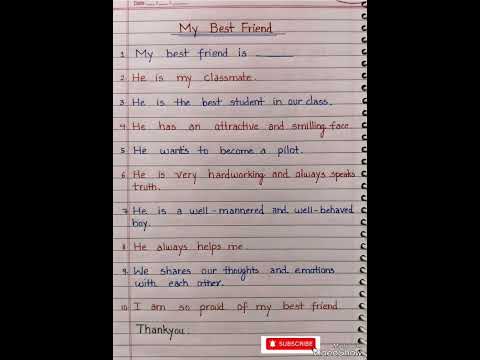 Date
My Best Friend
1. My best friend is ________
2. He is my classmate.
3. He is the best student in our class.
4. He has an attractive and smilling face.
5. He wants to become a pilot.
6. He is very hardworking and always speaks
truth.
7. He is a well-mannered and well-behaved
boy.
8. He always helps me.
9. We shares our thoughts and emotions
with each other.
10. I am so proud of my best friend.
Thankyou.
SUBSCRIBE
VideoShow